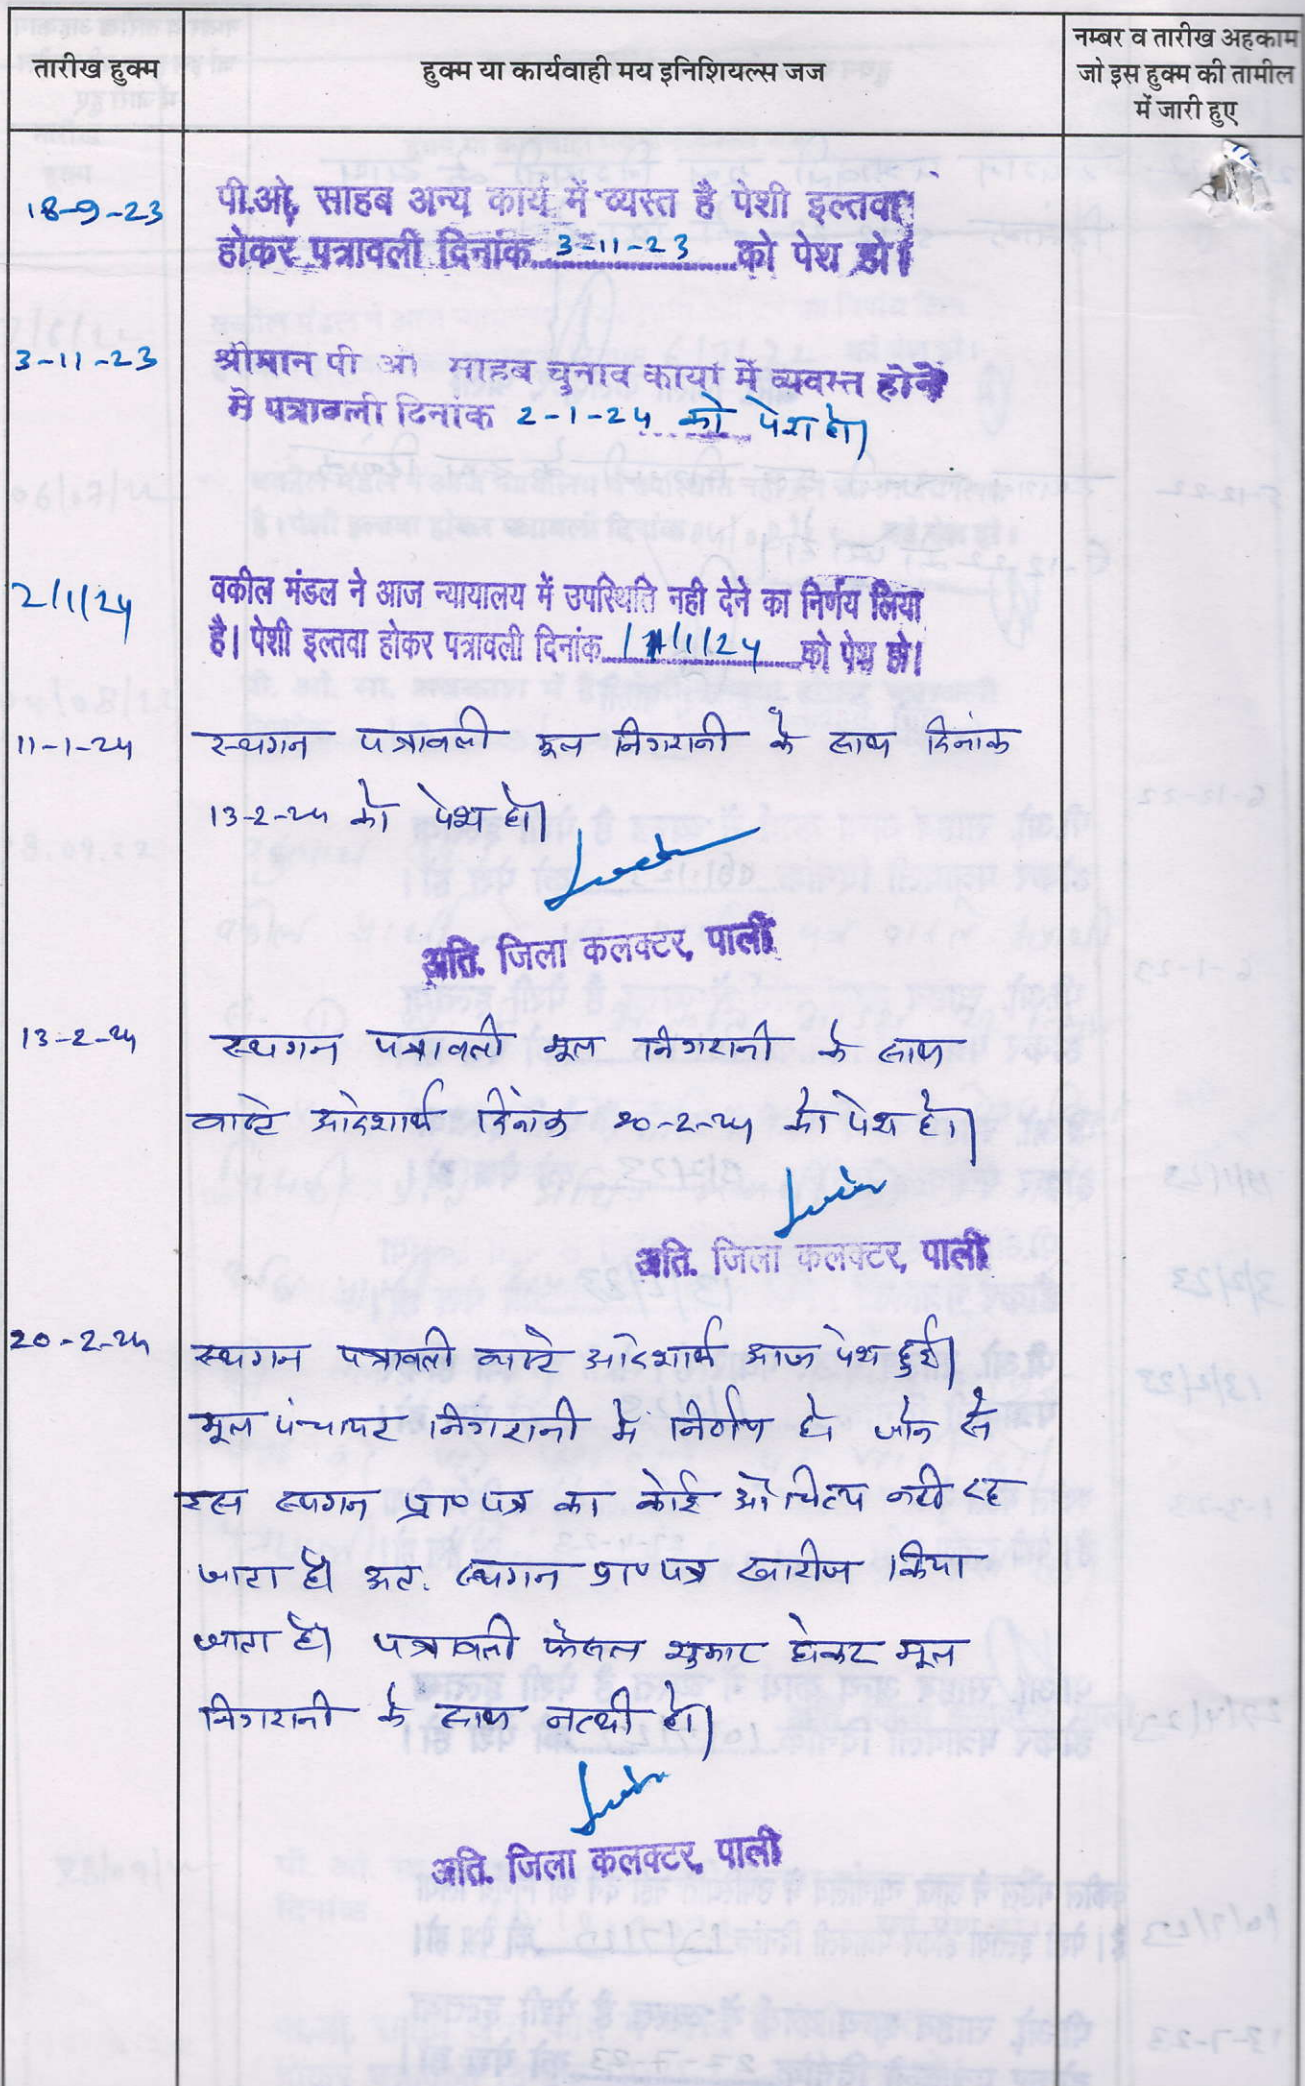 तारीख हुक्म
हुक्म या कार्यवाही मय इनिशियल्स जज
नम्बर व तारीख अहकाम
जो इस हुक्म की तामील
में जारी हुए
18-9-23
पी.ओ. साहब अन्य कार्य में व्यस्त है पेशी इल्तवा
होकर पत्रावली दिनांक 3-11-23 को पेश हो।
3-11-23
श्रीमान पी ओ साहब चुनाव कार्यो में व्यवस्त होने
से पत्रावली दिनांक 2-1-24 को पेश हो।
2/1/24
वकील मंडल ने आज न्यायालय में उपस्थिति नही देने का निर्णय लिया
है। पेशी इल्तवा होकर पत्रावली दिनांक 11/1/24 को पेश हो।
11-1-24
स्थगन पत्रावली मूल निगरानी के साथ दिनांक
13-2-24 को पेश हो।
अति. जिला कलक्टर, पाली
13-2-24
स्थगन पत्रावली मूल निगरानी के साथ
वास्ते आदेशार्थ दिनांक 20-2-24 को पेश हो।
अति. जिला कलक्टर, पाली
20-2-24
स्थगन पत्रावली वास्ते आदेशार्थ आज पेश हुई।
मूल पंचायत निगरानी में निर्णय हो जाने से
इस स्थगन प्रा० पत्र का कोई औचित्य नही रह
जाता है। अतः स्थगन प्रा० पत्र खारीज किया
जाता है। पत्रावली फैसल शुमार होकर मूल
निगरानी के साथ नत्थी हो।
अति. जिला कलक्टर, पाली